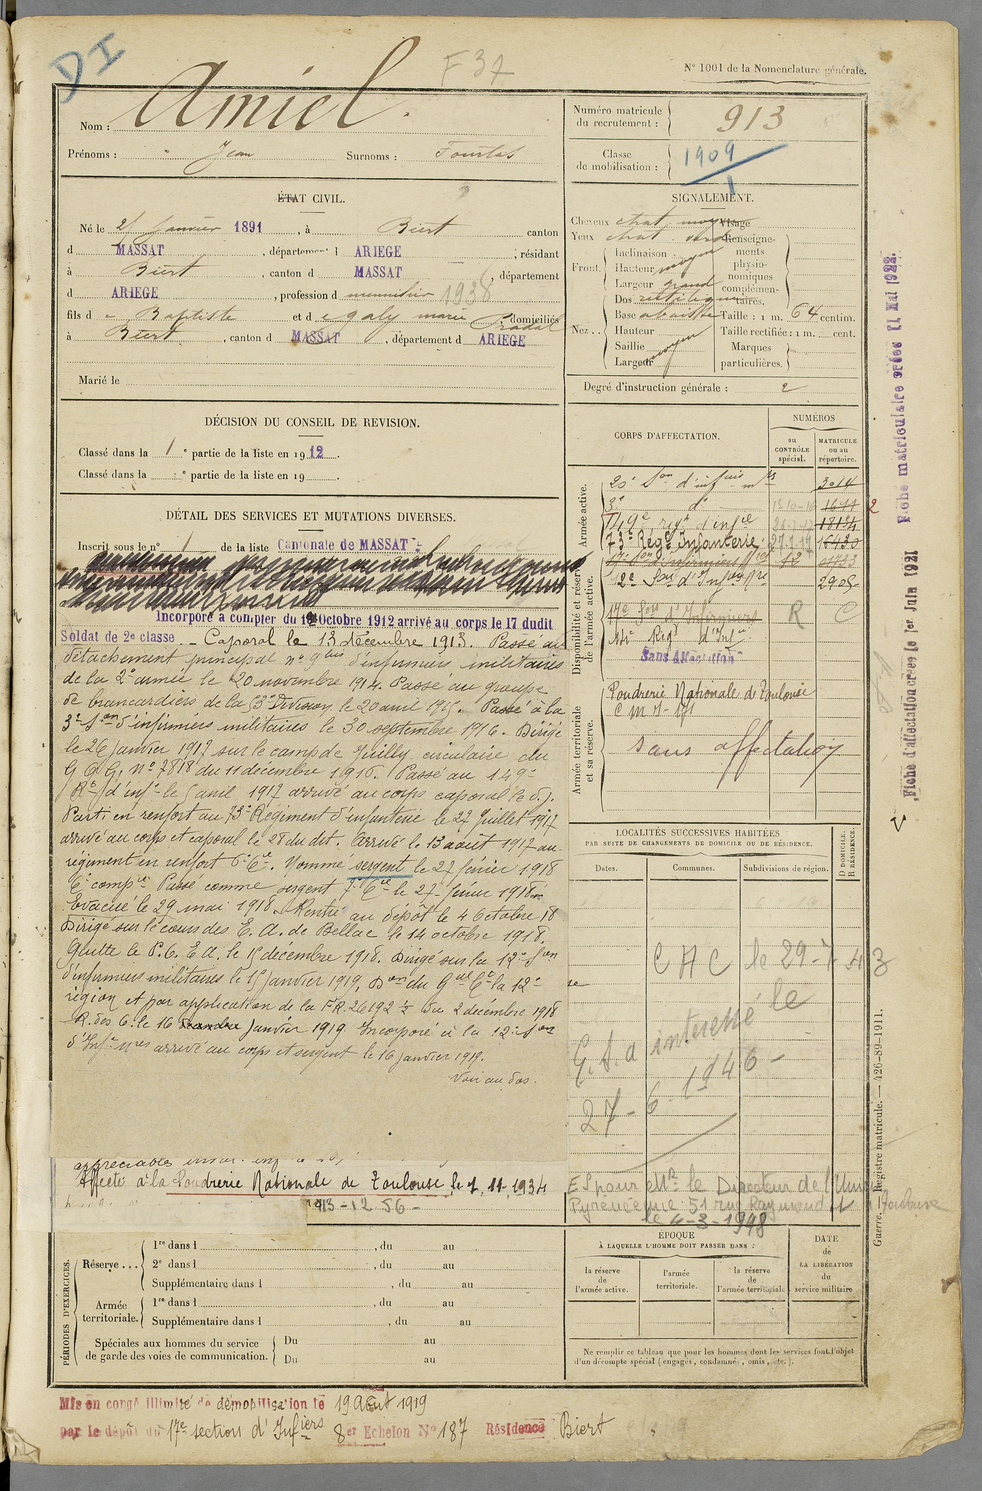 DI
F 37
N° 1001 de la Nomenclature générale.
Nom : Amiel
Prénoms : Jean Surnoms : Tourtas
Numéro matricule du recrutement : 913
Classe de mobilisation : 1909
1
ÉTAT CIVIL.
Né le janvier 1891, à Biert canton
d MASSAT, département d ARIEGE, résidant
à Biert, canton d MASSAT, département
d ARIEGE, profession d menuisier 1938
fils d Baptiste et d egaly marie Pradal domiciliés
à Biert, canton d MASSAT, département d ARIEGE
Marié le
SIGNALEMENT.
Cheveux chat. moyen Visage
Yeux chat. Renseignements physionomiques complémentaires.
Front. Inclinaison moyen
Hauteur
Largeur grand
Nez .. Dos rectiligne
Base abaissée Taille : 1 m. 64 centim.
Hauteur moyen Taille rectifiée : 1 m. cent.
Saillie Marques particulières.
Largeur
Degré d'instruction générale : 2
DÉCISION DU CONSEIL DE REVISION.
Classé dans la 1e partie de la liste en 1912.
Classé dans la e partie de la liste en 19
DÉTAIL DES SERVICES ET MUTATIONS DIVERSES.
Inscrit sous le n° 1 de la liste Cantonale de MASSAT
Incorporé à compter du 1 Octobre 1912 arrivé au corps le 17 dudit
Soldat de 2e classe - Caporal le 13 décembre 1913. Passé au
détachement principal n° 9 bis d'infirmiers militaires
de la 2e armée le 20 novembre 1914. Passé au groupe
de brancardiers de la Division le 20 avril 1915. Passé à la
3e Son d'infirmiers militaires le 30 septembre 1916. Dirigé
le 26 janvier 1917 sur le camp de Juilly circulaire du
G.Q.G. N° 7818 du 11 décembre 1916. Passé au 149e
Rt d'infie le 5 avril 1917 arrivé au corps caporal le d. j.
Parti en renfort au 73e Régiment d'infanterie le 27 Juillet 1917
arrivé au corps et caporal le 28 du dit. Arrivé le 13 août 1917 au
régiment en renfort 6e Cie. Nommé sergent le 27 février 1918
6e compie Passé comme sergent 7e Cie le 27 février 1918
Evacué le 29 mai 1918. Rentré au dépôt le 4 Octobre 18
Dirigé sur le cours des E. A. de Bellac le 14 octobre 1918.
Quitte le P. C. E. A. le 15 décembre 1918. Dirigé sur la 12e Son
d'infirmiers militaires le 15 Janvier 1919. Don du Gal Ct la 12e
région et par application de la F.R. 26192 1/4 du 2 décembre 1918
R. des C. le 16 Janvier 1919 Incorporé à la 12e Son
d'Infirs mres arrivé au corps et sergent le 16 janvier 1919.
Voir au dos.
appréciables
Affecté à la Poudrerie Nationale de Toulouse le 1. 11. 1934
913-12 56 -
CORPS D'AFFECTATION.
NUMÉROS
au CONTRÔLE spécial.
MATRICULE ou au répertoire.
Armée active.
Son d'infirs mres 3014
3e d° 1611 2
149e régt d'infie 18134
73e Régt Infanterie 27.7.17 16430
Disponibilité et réserve de l'armée active.
12e Son d'Infors mre 2905
17e Son d'Infirmiers R C
Régt d'Infie
Sans Affectation
Armée territoriale et sa réserve.
Poudrerie Nationale de Toulouse
sans affectation
LOCALITÉS SUCCESSIVES HABITÉES
PAR SUITE DE CHANGEMENTS DE DOMICILE OU DE RÉSIDENCE.
Dates. Communes. Subdivisions de région. D DOMICILE. R RÉSIDENCE.
C A C le 29-7-43
G.S.a interessé le
27-6-1946 -
ES pour Mr. le Directeur de l'Union
Pyrénéenne 51 rue Raymond IV à Toulouse
le 4-3-1948
ÉPOQUE
À LAQUELLE L'HOMME DOIT PASSER DANS :
la réserve de l'armée active.
l'armée territoriale.
la réserve de l'armée territoriale.
DATE de LA LIBÉRATION du service militaire
Ne remplir ce tableau que pour les hommes dont les services font l'objet
d'un décompte spécial (engagés, condamnés, omis, etc.).
PÉRIODES D'EXERCICES.
Réserve ... 1re dans l , du au
2e dans l , du au
Supplémentaire dans l , du au
Armée territoriale. 1re dans l , du au
Supplémentaire dans l , du au
Spéciales aux hommes du service de garde des voies de communication. Du au
Du au
Mis en congé illimité de démobilisation le 19 août 1919
par le dépôt du 17e section d'Infiers 8er Echelon N° 187 Résidence Biert
Fiche matriculaire créée 11 Mai 1922.
Fiche d'affectation créée le 1er Juin 1921
Guerre. Registre matricule. — 426-89-1911.